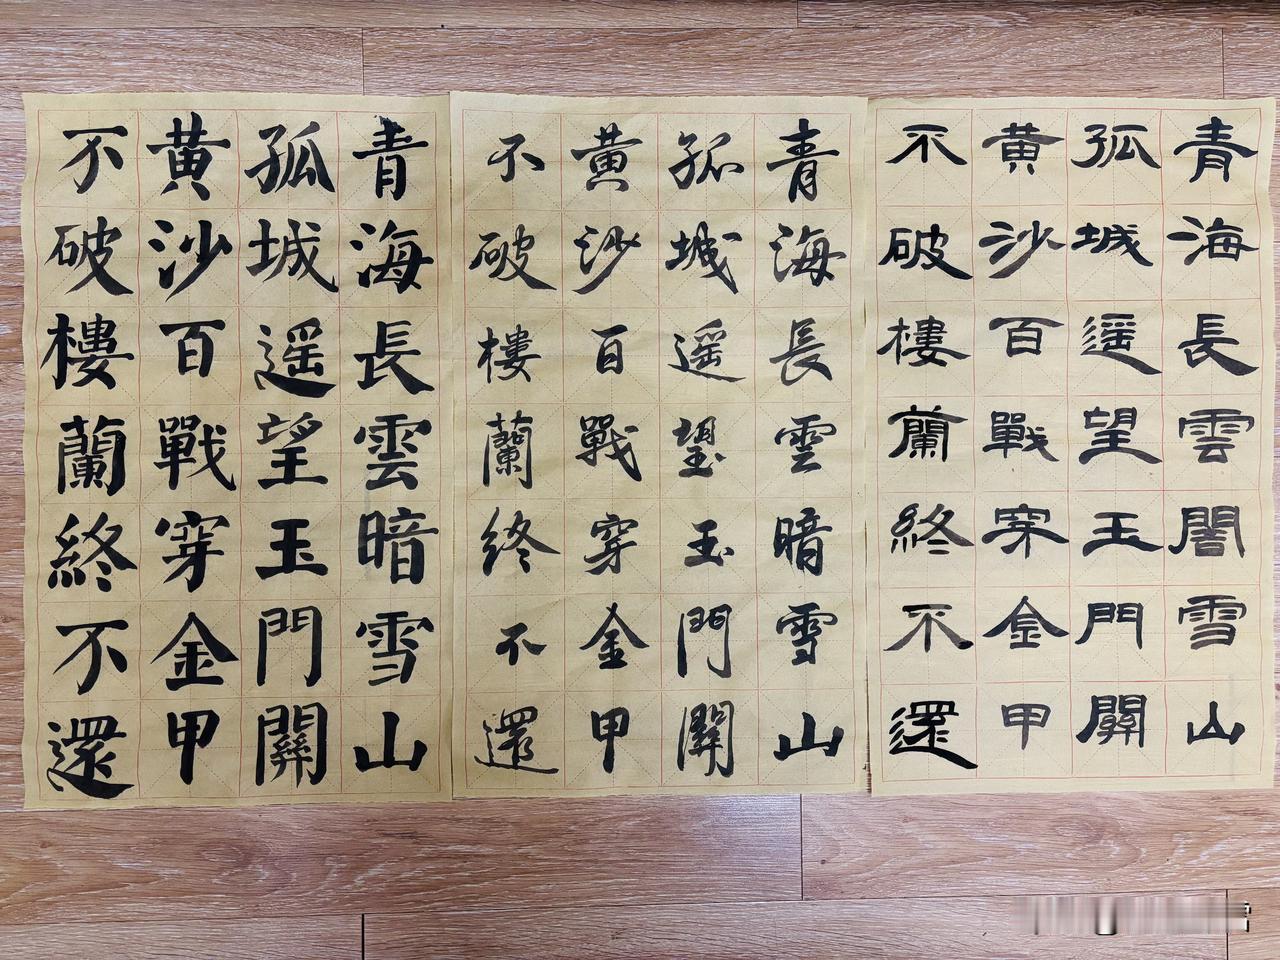 青海長雲闇雪山
孤城遥望玉門關
黄沙百戰穿金甲
不破樓蘭終不還
青海長雲暗雪山
孤城遥望玉門關
黄沙百戰穿金甲
不破樓蘭終不還
青海長雲暗雪山
孤城遥望玉門關
黄沙百戰穿金甲
不破樓蘭終不還